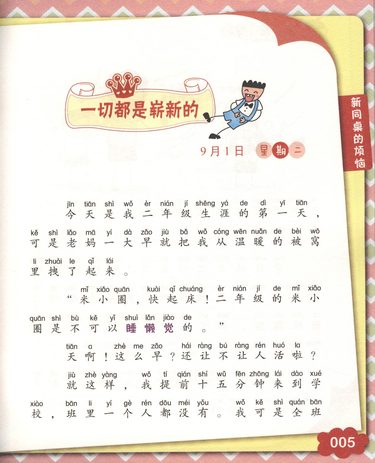 一切都是崭新的
9月1日 星期二
新同桌的烦恼
jīn tiān shì wǒ èr nián jí shēng yá de dì yī tiān
今天是我二年级生涯的第一天，
kě shì lǎo mā yí dà zǎo jiù bǎ wǒ cóng wēn nuǎn de bèi wō
可是老妈一大早就把我从温暖的被窝
li zhuài le qǐ lái
里拽了起来。
mǐ xiǎo quān kuài qǐ chuáng èr nián jí de mǐ xiǎo
“米小圈，快起床！二年级的米小
quān shì bù kě yǐ shuì lǎn jiào de
圈是不可以睡懒觉的。”
tiān a zhè me zǎo hái ràng bu ràng rén huó la
天啊！这么早？还让不让人活啦？
jiù zhè yàng wǒ tí qián shí wǔ fēn zhōng lái dào xué
就这样，我提前十五分钟来到学
xiào bān li yí gè rén dōu méi yǒu wǒ kě shì quán bān
校，班里一个人都没有。我可是全班
005